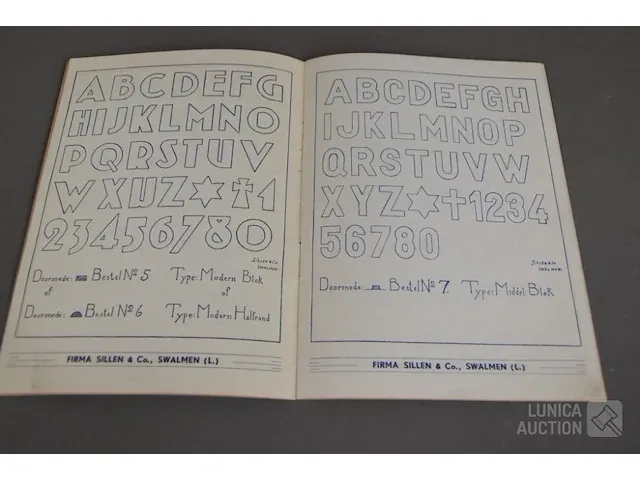 ABCDEFG
HIJKLMNO
PQRSTUV
WXUZ✡✝1
23456780
Sillen & Co
SWALMEN
Doorsnede: Bestel Nº 5 Type: Modern Blok
of of
Doorsnede: Bestel Nº 6 Type: Modern Halfrond
FIRMA SILLEN & Co., SWALMEN (L.)
ABCDEFGH
IJKLMNOP
QRSTUVW
XYZ✡✝1234
56780
Sillen & Co
SWALMEN
Doorsnede: Bestel Nº 7. Type: Middel Blok
FIRMA SILLEN & Co., SWALMEN (L.)
LUNICA
AUCTION